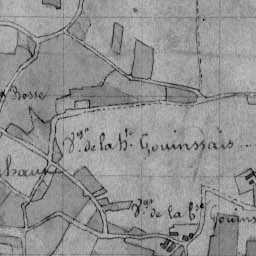 Bosse
Vge. de la hte. Gouinssais
haut
Vge. de la bse. Gouins